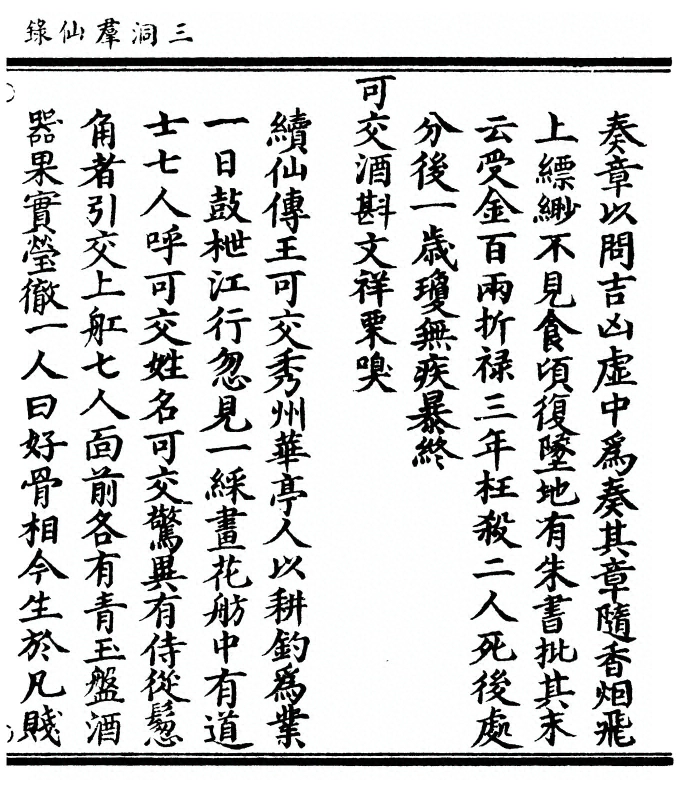 三洞羣仙錄
奏章以問吉凶虛中爲奏其章隨香烟飛
上縹緲不見食頃復墜地有朱書批其末
云受金百兩折禄三年枉殺二人死後處
分後一歲瓊無疾暴終
可交酒斟文祥栗嗅
續仙傳王可交秀州華亭人以耕釣爲業
一日鼓枻江行忽見一綵畫花舫中有道
士七人呼可交姓名可交驚異有侍從鬘
角者引交上舡七人面前各有青玉盤酒
器果實瑩徹一人曰好骨相今生於凡賤